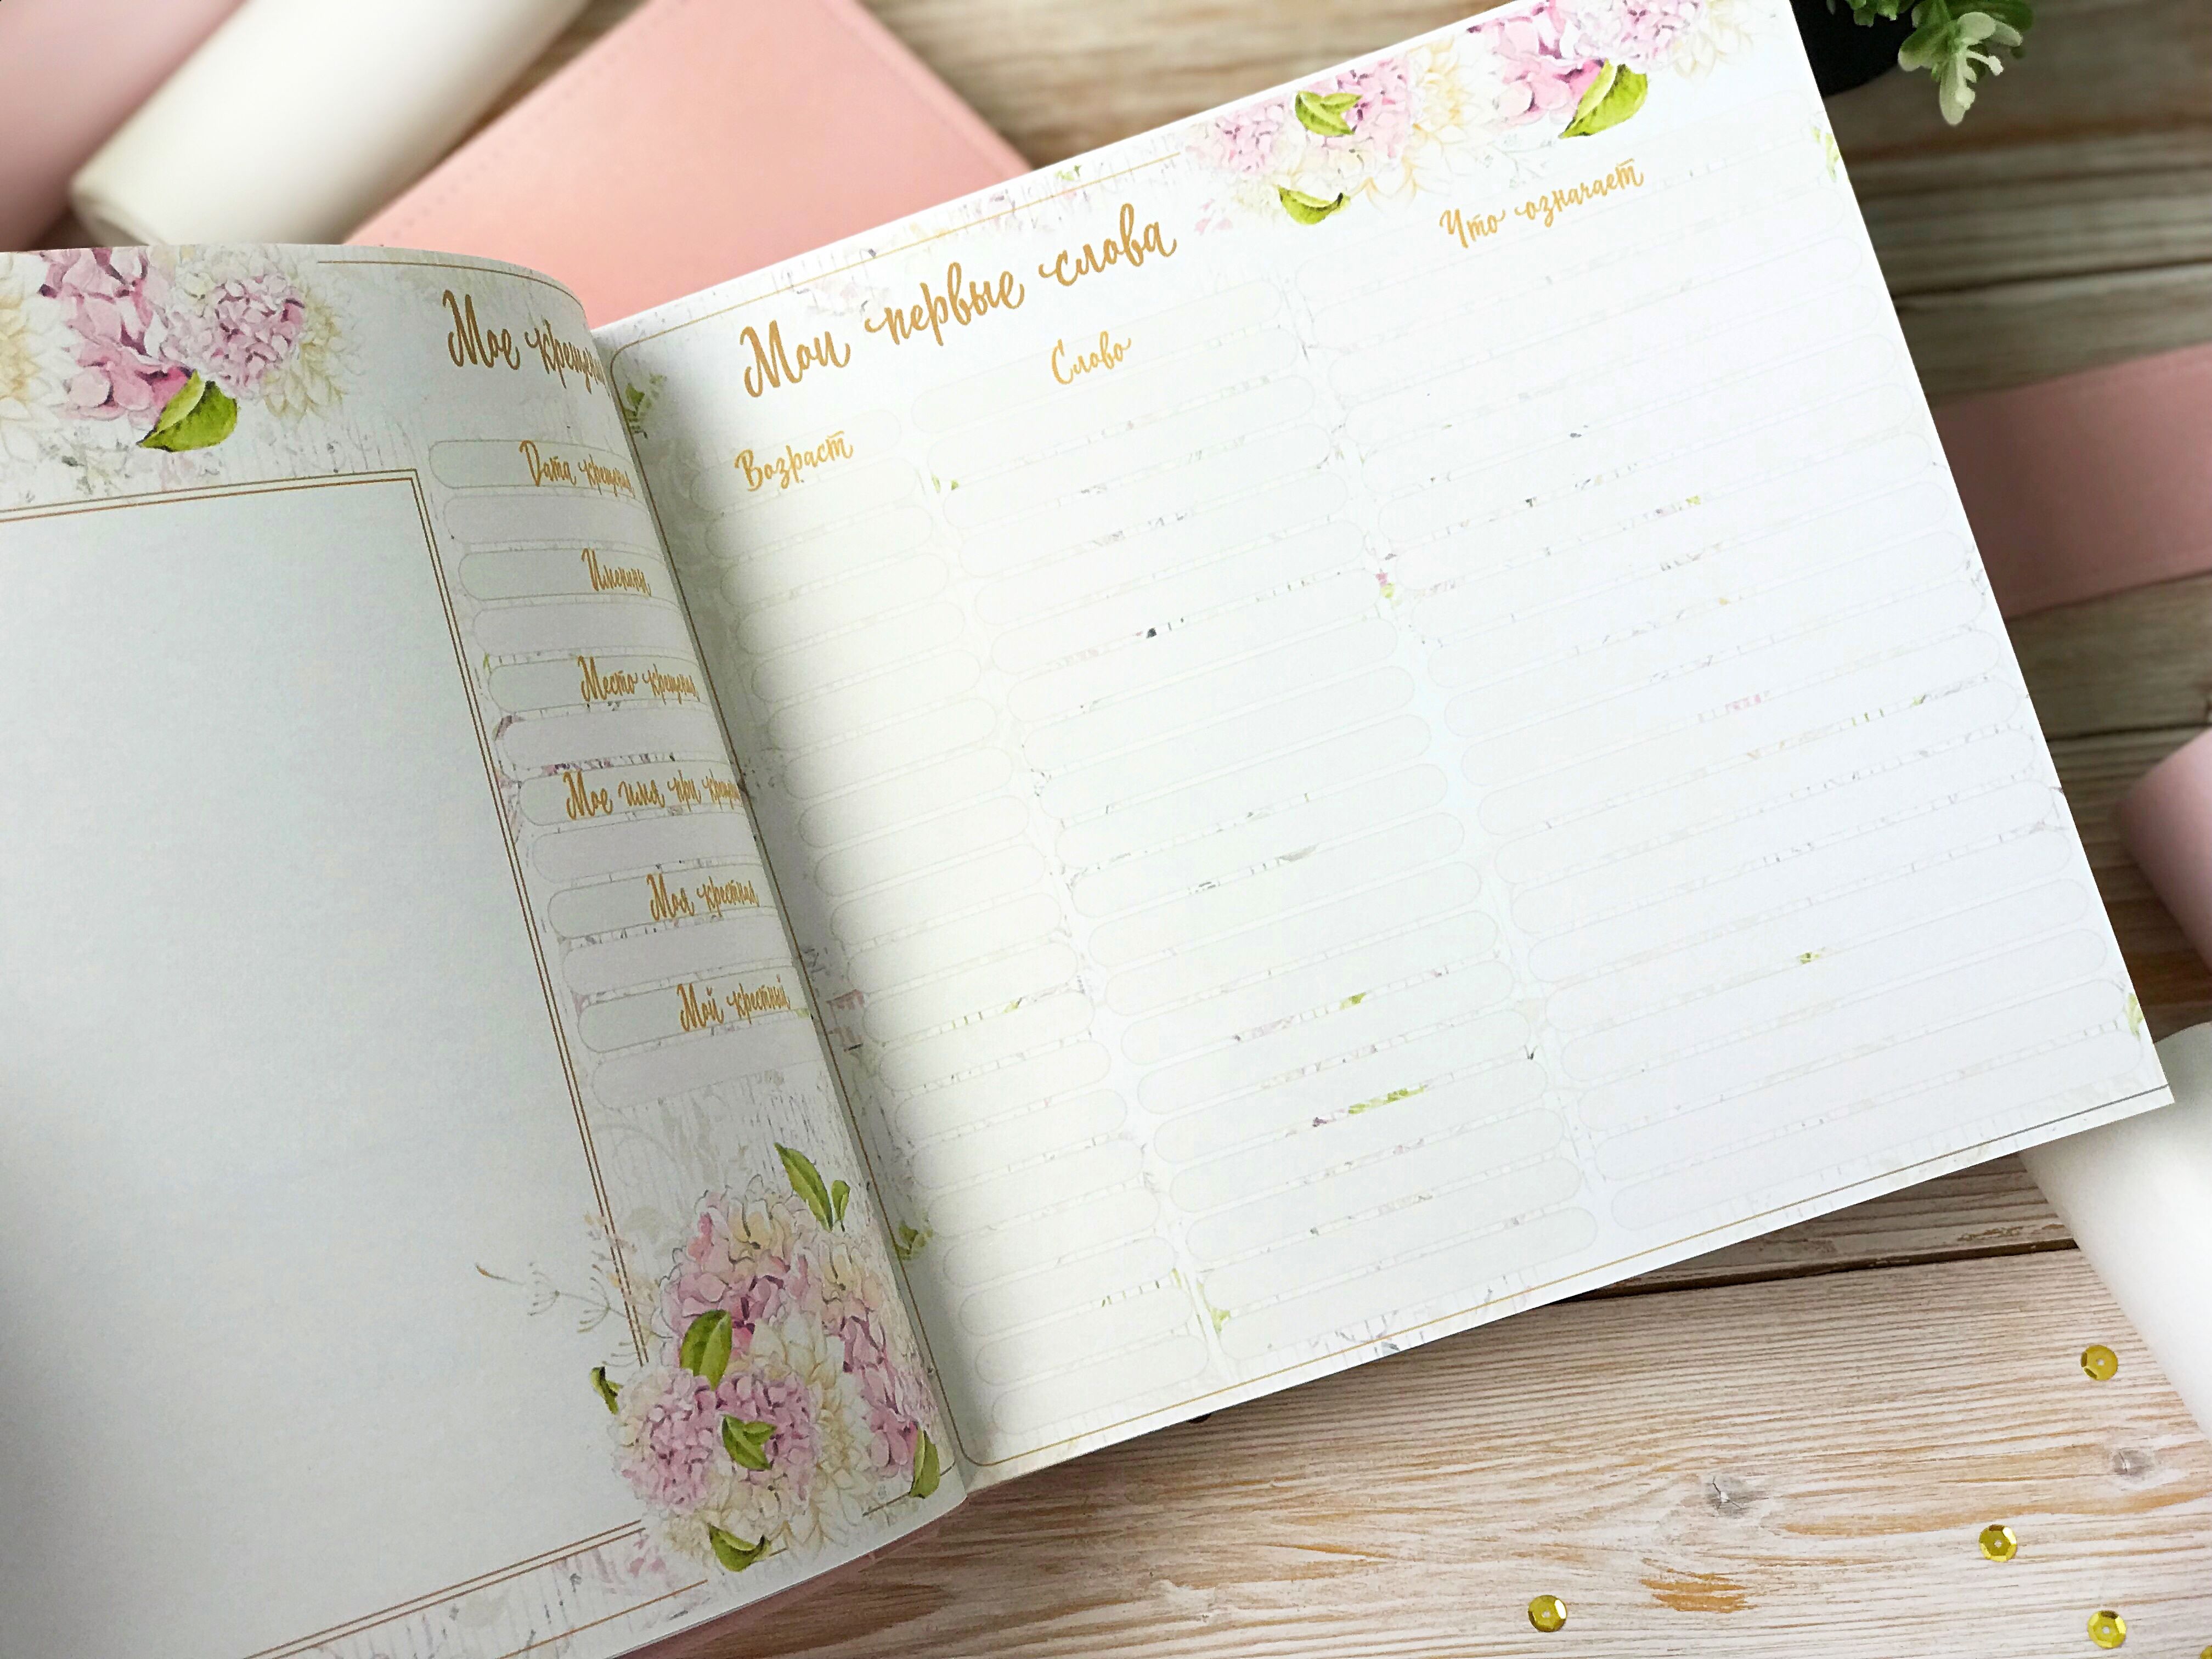 Мое крещение
Дата крещения
Именины
Место крещения
Мое имя при
Моя крестная
Мой крестный
Мои первые слова
Возраст
Слово
Что означает